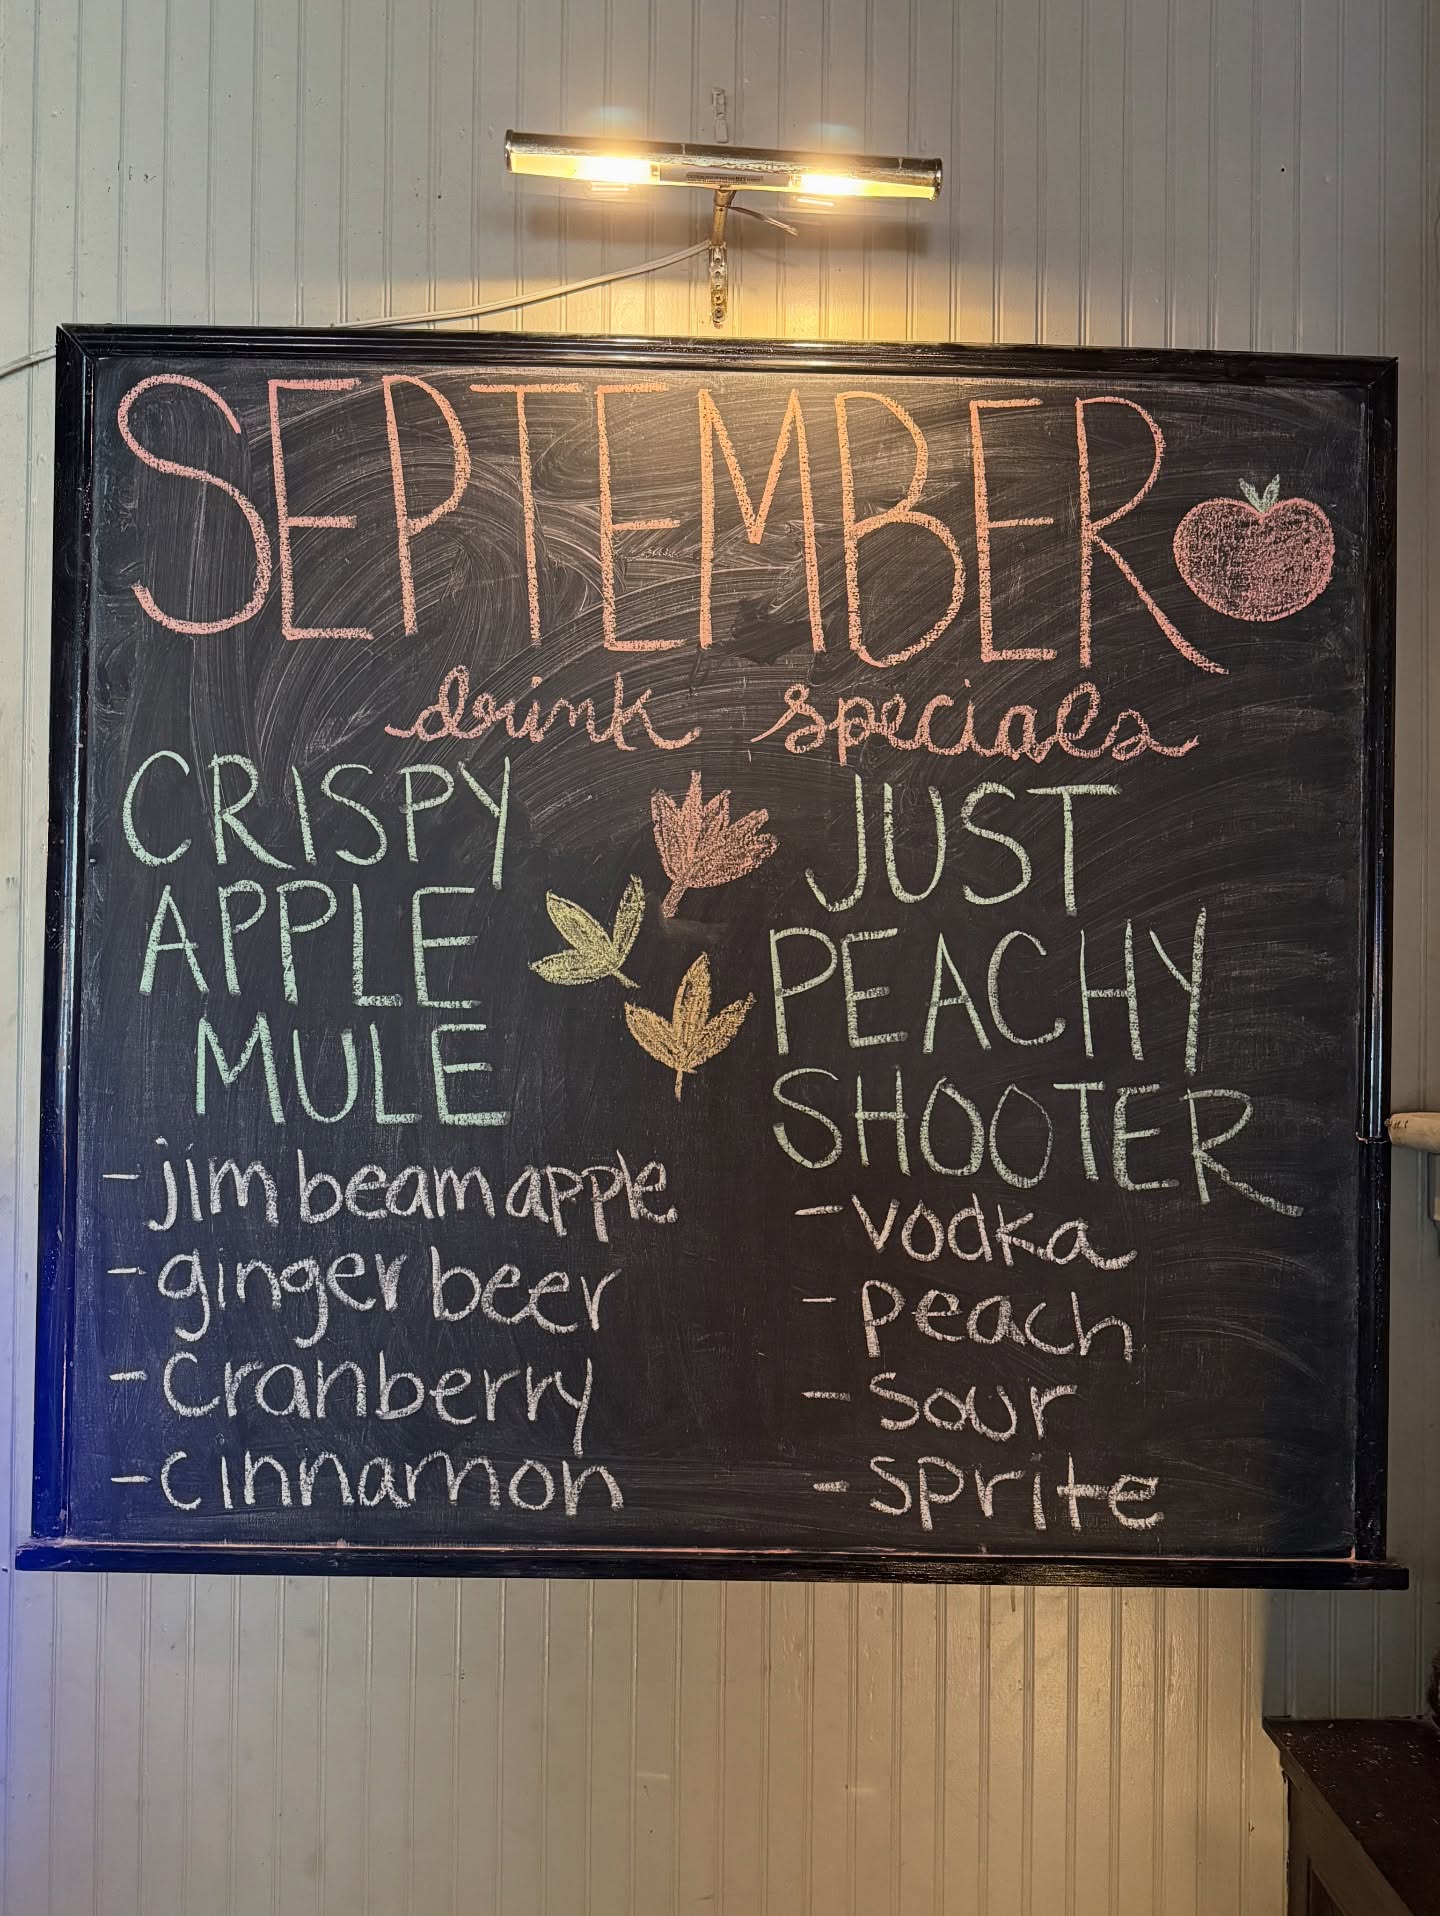 SEPTEMBER
drink specials
CRISPY
APPLE
MULE
- jim beam apple
- ginger beer
- cranberry
- cinnamon
JUST
PEACHY
SHOOTER
- vodka
- peach
- sour
- sprite